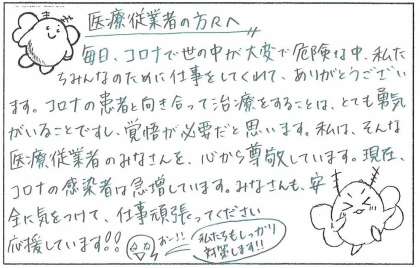 医療従業者の方々へ
毎日、コロナで世の中が大変で危険な中、私た
ちみんなのために仕事をしてくれて、ありがとうござい
ます。コロナの患者と向き合って治療をすることは、とても勇気
がいることですし、覚悟が必要だと思います。私は、そんな
医療従業者のみなさんを、心から尊敬しています。現在、
コロナの感染者は急増しています。みなさんも、安
全に気をつけて、仕事頑張ってください
応援しています!!
私たちもしっかり
対策します!!